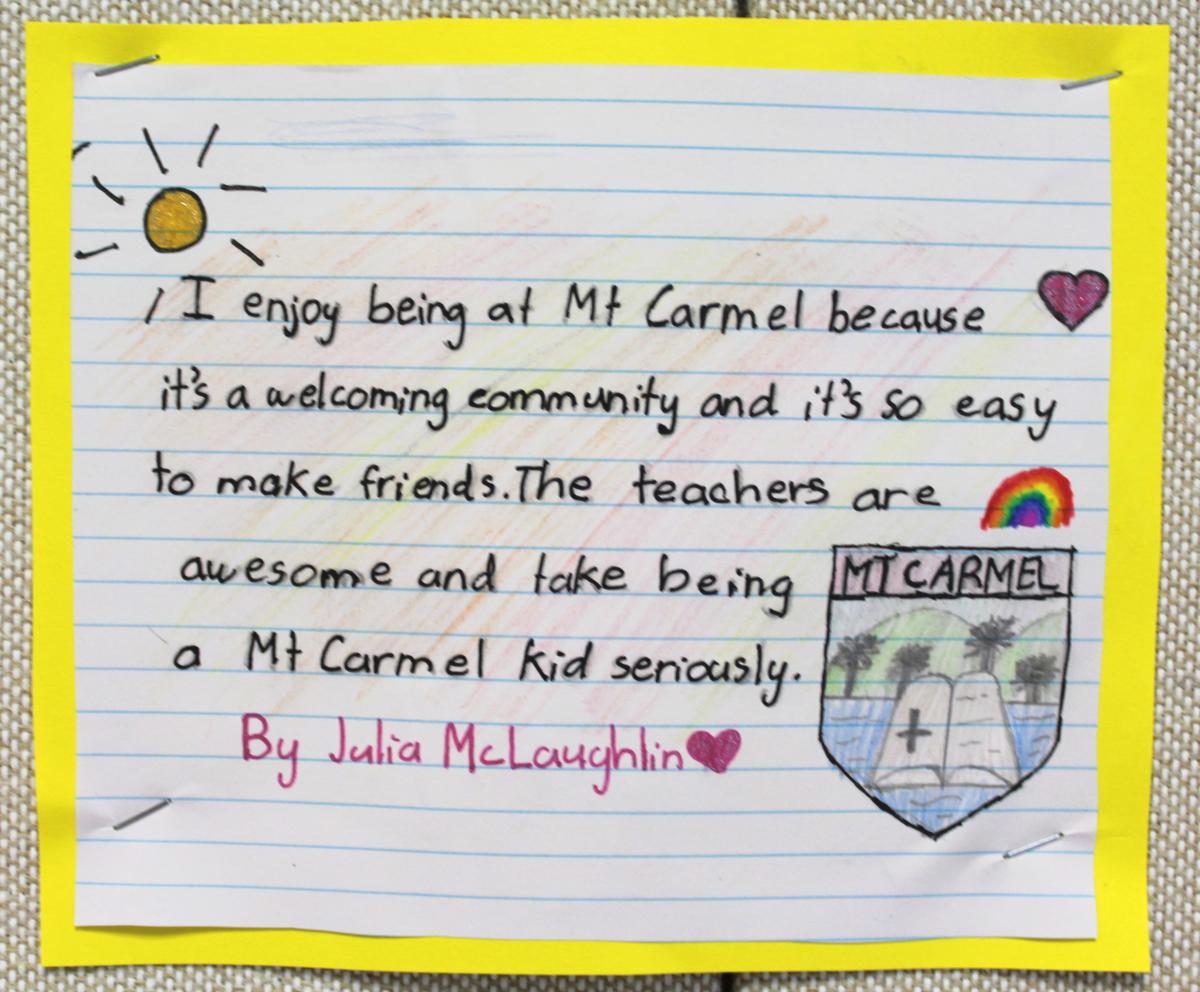 I enjoy being at Mt Carmel because
it's a welcoming community and it's so easy
to make friends. The teachers are
awesome and take being
MT CARMEL
a Mt Carmel kid seriously.
By Julia McLaughlin